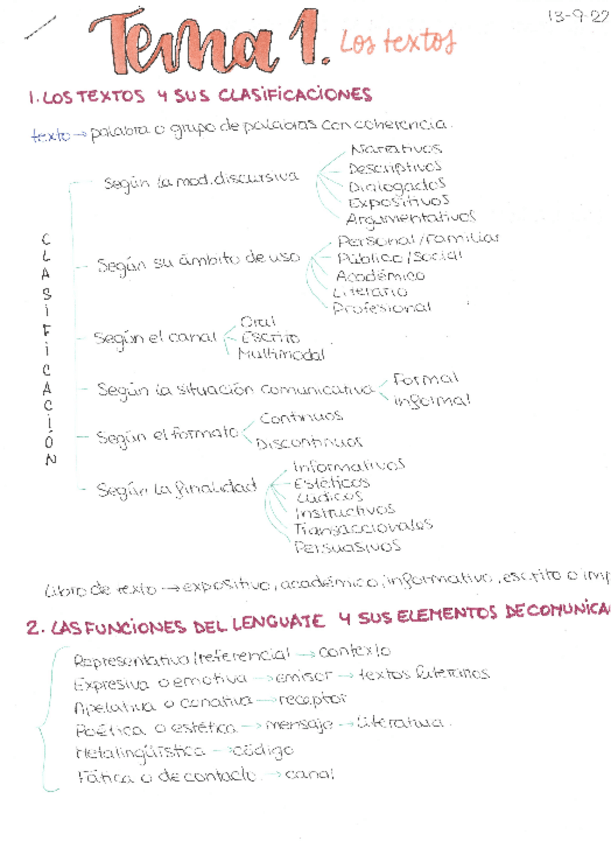 13-9-22
Tema 1. Los textos
1. LOS TEXTOS Y SUS CLASIFICACIONES
texto → palabra o grupo de palabras con coherencia.
CLASIFICACIÓN
Según la mod. discursiva
Narrativos
Descriptivos
Dialogados
Expositivos
Argumentativos
Según su ámbito de uso
Personal/Familiar
Público/Social
Académico
Literario
Profesional
Según el canal
Oral
Escrito
Multimodal
Según la situación comunicativa
Formal
informal
Según el formato
Continuos
Discontinuos
Según la finalidad
Informativos
Estéticos
Lúdicos
Instructivos
Transaccionales
Persuasivos
Libro de texto → expositivo, académico, informativo, escrito o imp
2. LAS FUNCIONES DEL LENGUATE Y SUS ELEMENTOS DE COMUNICA
Representativa/referencial → contexto
Expresiva o emotiva → emisor → textos literarios
Apelativa o conativa → receptor
Poética o estética → mensaje → Literatura.
Metalingüística → código
Fática o de contacto. → canal